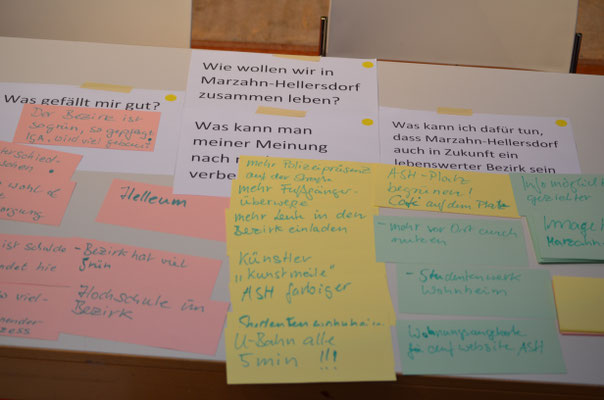 Wie wollen wir in
Marzahn-Hellersdorf
zusammen leben?
Was gefällt mir gut?
Der Bezirk ist
so grün, so gepflegt
IGA wird viel
Helleum
- Bezirk hat viel
Grün
Hochschule im
Bezirk
Was kann man
meiner Meinung
nach
verbe
mehr Polizeipräsenz
auf der Straße
mehr Fußgänger-
überwege
mehr Leute in den
Bezirk einladen
Künstler
„Kunstmeile"
ASH farbiger
Studenten
U-Bahn alle
5 min !!!
Was kann ich dafür tun,
dass Marzahn-Hellersdorf
auch in Zukunft ein
lebenswerter Bezirk sein
ASH-Platz
begrünen!
Café auf dem Platz
- mehr vor Ort auch
nutzen
- Studentenwerk
Wohnheim
Wohnungsangebote
für auf website ASH
Info möglich
gezielter
Image
Marzahn